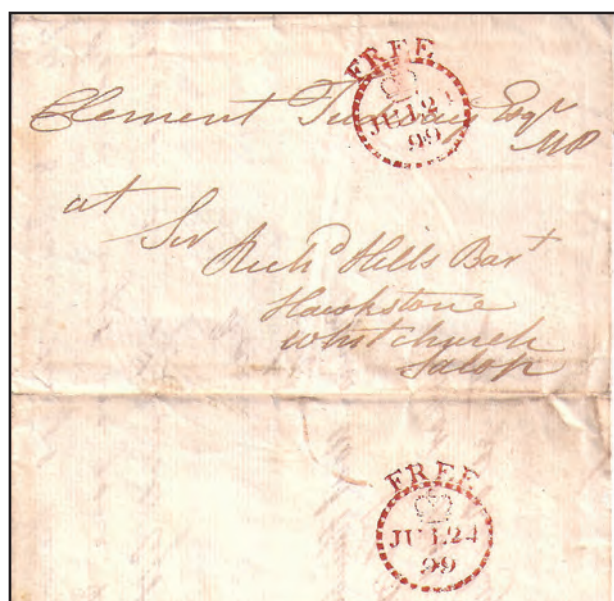 FREE
JUL 24
99
Clement Tudway Esqr
MP
at
Sir Richd Hills Bart
Hawkstone
Whitchurch
Salop
FREE
JUL 24
99